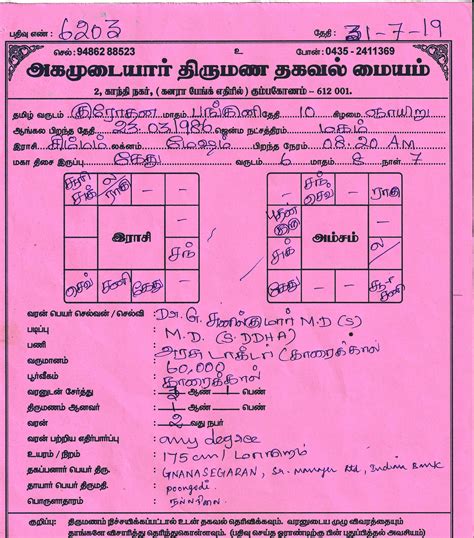 பதிவு எண் : 6203 தேதி : 31-7-19
செல் : 94862 88523 உ போன் : 0435 - 2411369
அகமுடையார் திருமண தகவல் மையம்
2, காந்தி நகர், (கனரா பேங்க் எதிரில்) கும்பகோணம் – 612 001.
தமிழ் வருடம் குரோதன மாதம் பங்குனி தேதி 10 கிழமை ஞாயிறு
ஆங்கில பிறந்த தேதி 23.03.1986 ஜென்ம நட்சத்திரம் மகம்
இராசி சிம்மம் லக்னம் மேஷம் பிறந்த நேரம் 08.20 AM
மகா திசை இருப்பு கேது வருடம் 6 மாதம் 8 நாள் 7
சூரி சுக் ல ராகு – –
– – சந்
இராசி
செவ் சனி கேது –
– சந் செவ் – ராகு
புதன் குரு சுக் – ல
அம்சம்
கேது – – சூரி சனி
வரன் பெயர் செல்வன் / செல்வி : Dr. G. M.D (S)
படிப்பு : M.D. (SIDDHA)
பணி : அரசு டாக்டர் (காரைக்கால்
வருமானம் : 60,000
பூர்வீகம் : காரைக்கால்
வரனுடன் சேர்த்து : ஆண் 1 பெண்
திருமணம் ஆனவர் : 1 ஆண் 1 பெண்
வரன் : 2 வது நபர்
வரன் பற்றிய எதிர்பார்ப்பு : any degree
உயரம் / நிறம் : 175 cm / மாநிறம்
தகப்பனார் பெயர் திரு. : GNANASEGARAN, Sr. manager Rtd, Indian Bank
தாயார் பெயர் திருமதி. : poongodi
பொருளாதாரம் : நல்லநிலை
குறிப்பு: திருமணம் நிச்சயிக்கப்பட்டால் உடன் தகவல் தெரிவிக்கவும். வரனுடைய முழு விவரத்தையும்
தாங்களே விசாரித்து தெரிந்துகொள்ளவும். (பதிவு செய்த ஓராண்டிற்கு பின் புதுப்பித்தல் அவசியம்)